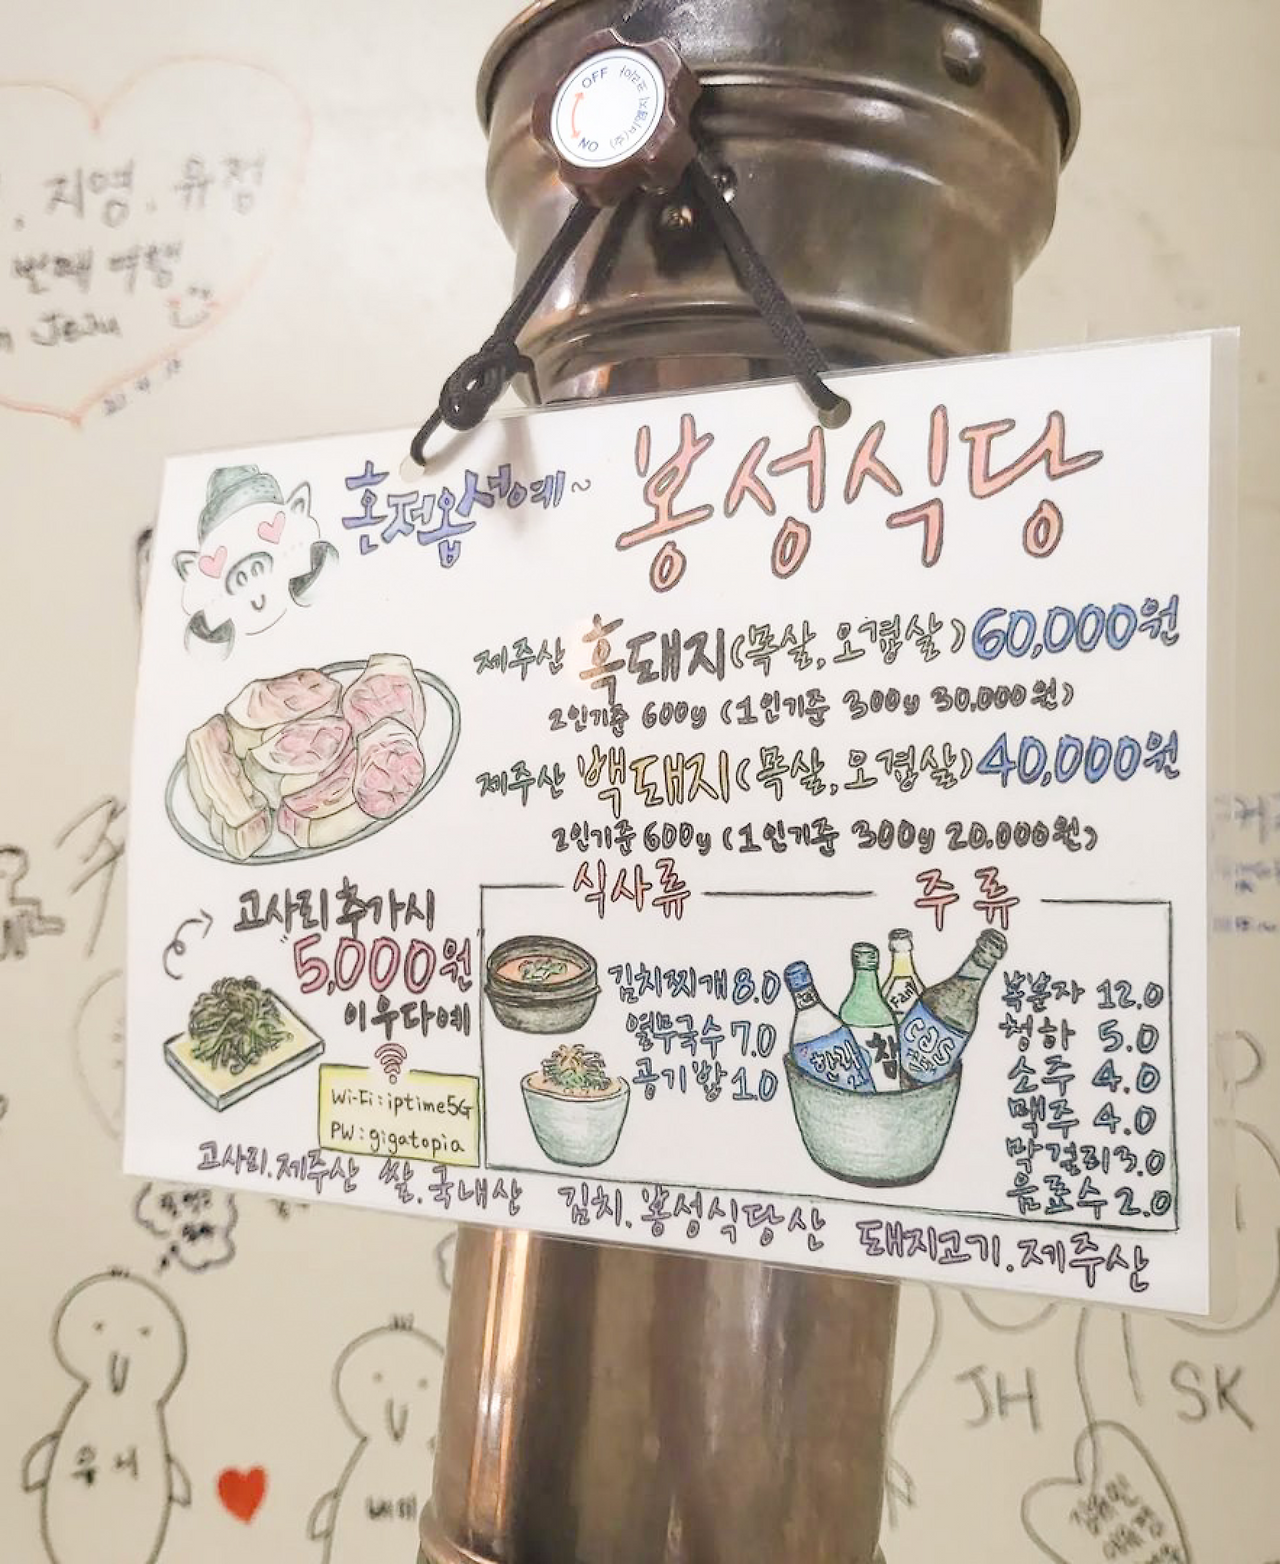 OFF
ON
지영. 유정
번째 여행
Jeju
혼저옵서예~
봉성식당
제주산 흑돼지(목살, 오겹살) 60,000원
2인기준 600g (1인기준 300g 30,000원)
제주산 백돼지(목살, 오겹살) 40,000원
2인기준 600g (1인기준 300g 20.000원)
고사리 추가시
"5,000원"
이우다예
Wi-Fi : iptime5G
PW : gigatopia
식사류
김치찌개 8.0
열무국수 7.0
공기밥 1.0
주류
한라
참
Cass
복분자 12.0
청하 5.0
소주 4.0
맥주 4.0
막걸리 3.0
음료수 2.0
고사리.제주산 쌀.국내산 김치.봉성식당산 돼지고기.제주산
JH
SK